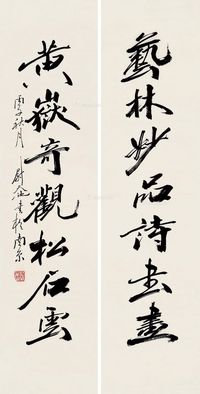 藝林妙品詩書畫
黃嶽奇觀松石雲
丙子秋月
尉天池書於南京